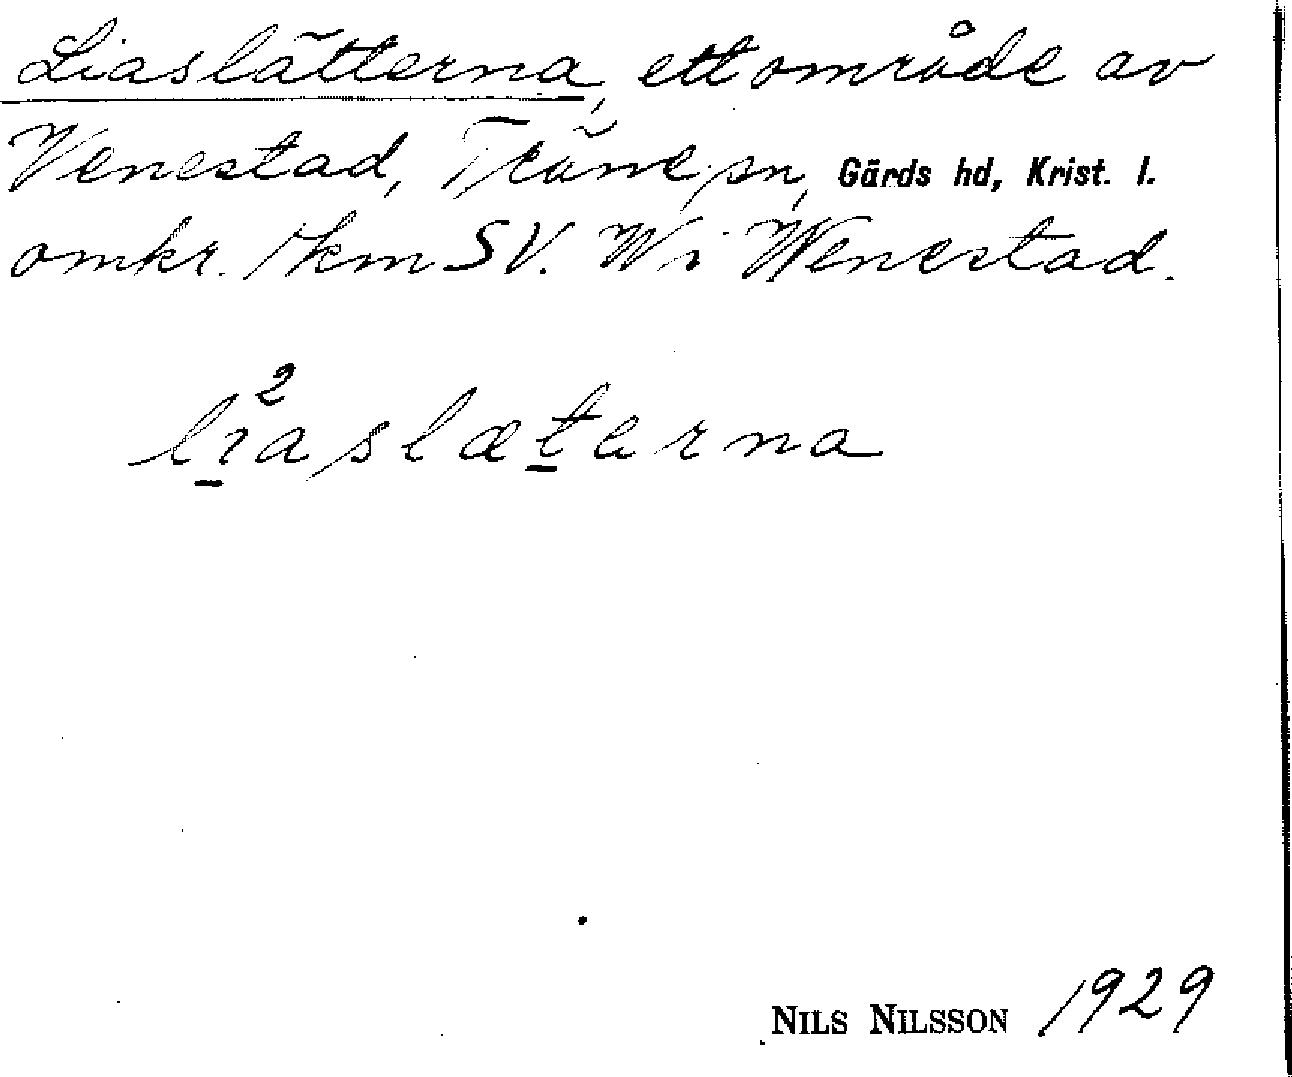 Liaslätterna, ett område av
Venestad, Träne sn, Gärds hd, Krist. l.
omkr. 1 km SV. W i Wenestad.
li²aslætarna
NILS NILSSON 1929